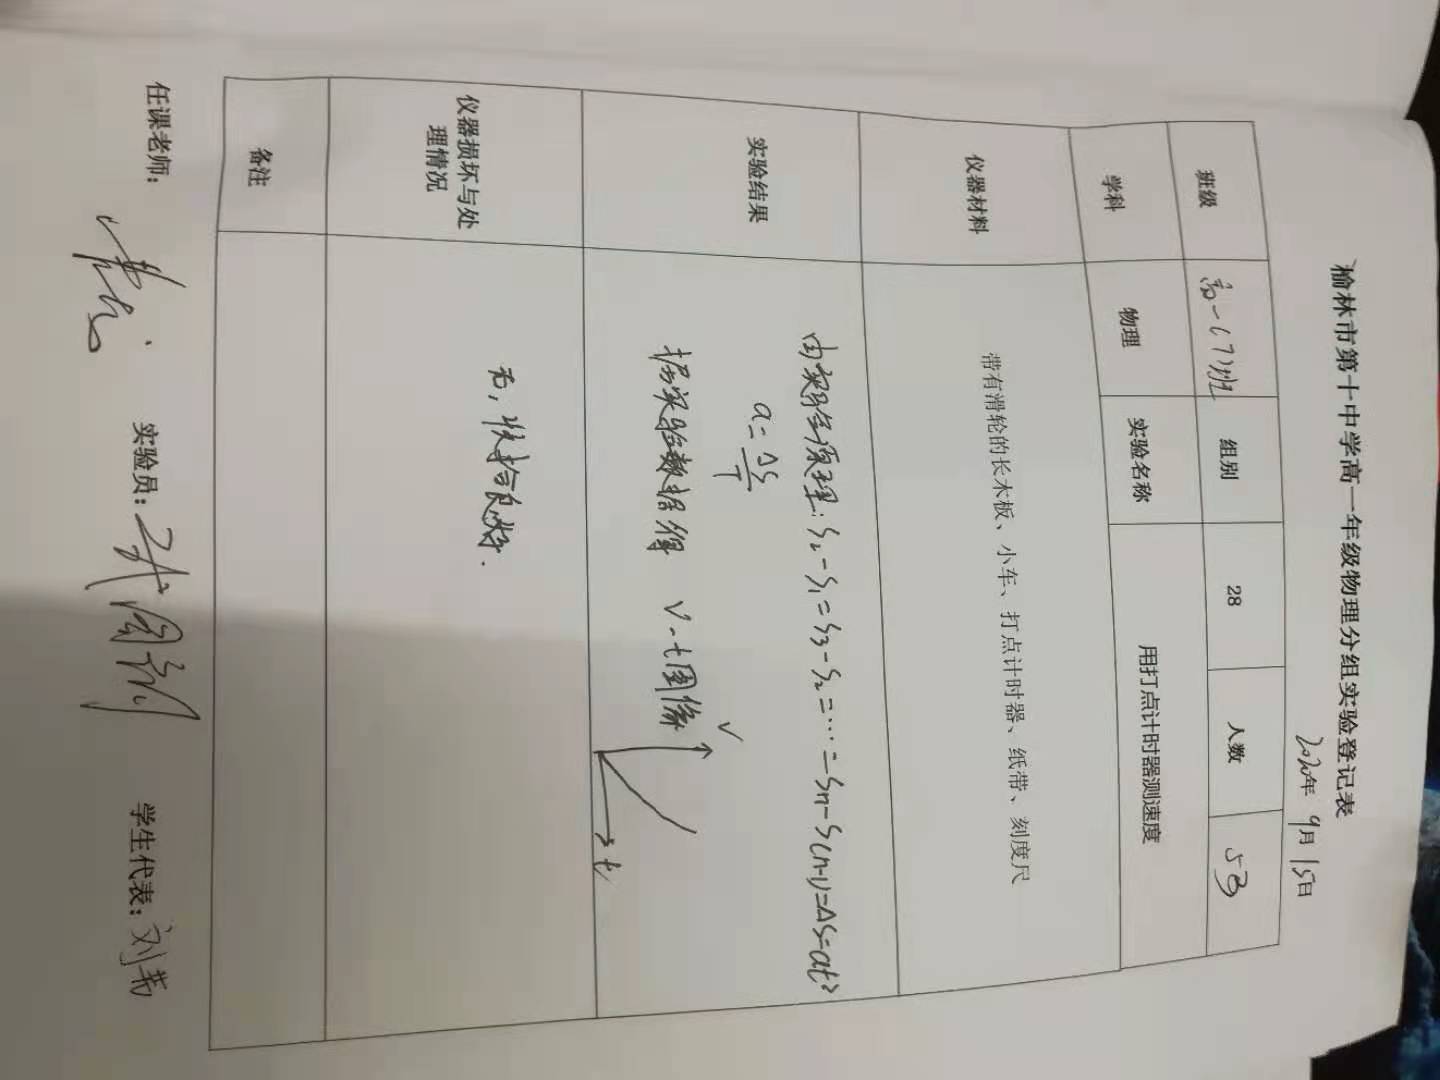 榆林市第十中学高一年级物理分组实验登记表
2020年 9月 15日
班级 高一(7)班 组别 28 人数 53
学科 物理 实验名称 用打点计时器测速度
仪器材料 带有滑轮的长木板、小车、打点计时器、纸带、刻度尺
实验结果
由实验原理: S₂-S₁=S₃-S₂=…=Sn-S(n-1)=ΔS=at²
a=ΔS/T
据实验数据得 v-t图像
v
t
仪器损坏与处
理情况
无,收拾良好.
备注
任课老师: 实验员: 学生代表:刘